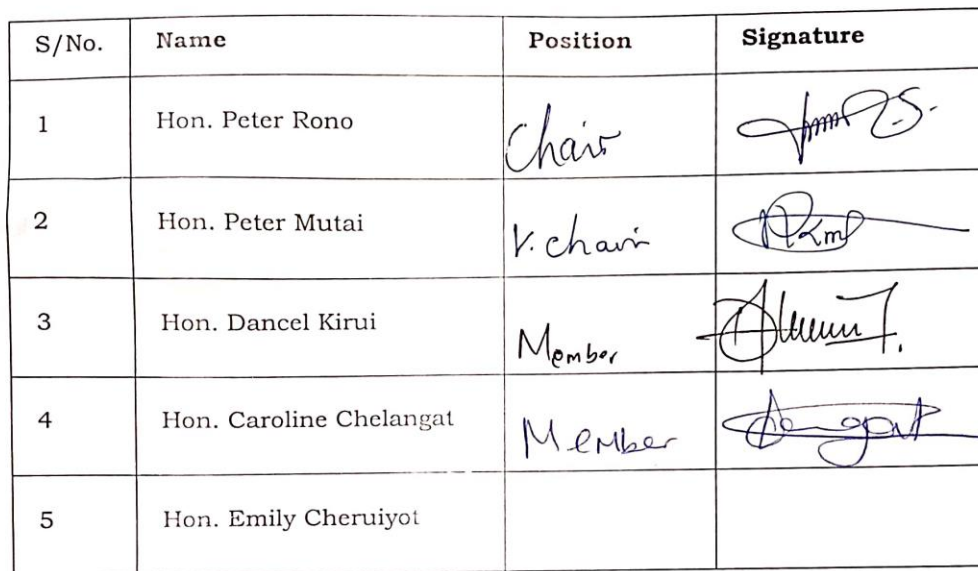 S/No. Name Position Signature
1 Hon. Peter Rono Chair
2 Hon. Peter Mutai V. Chair
3 Hon. Dancel Kirui Member
4 Hon. Caroline Chelangat Member
5 Hon. Emily Cheruiyot